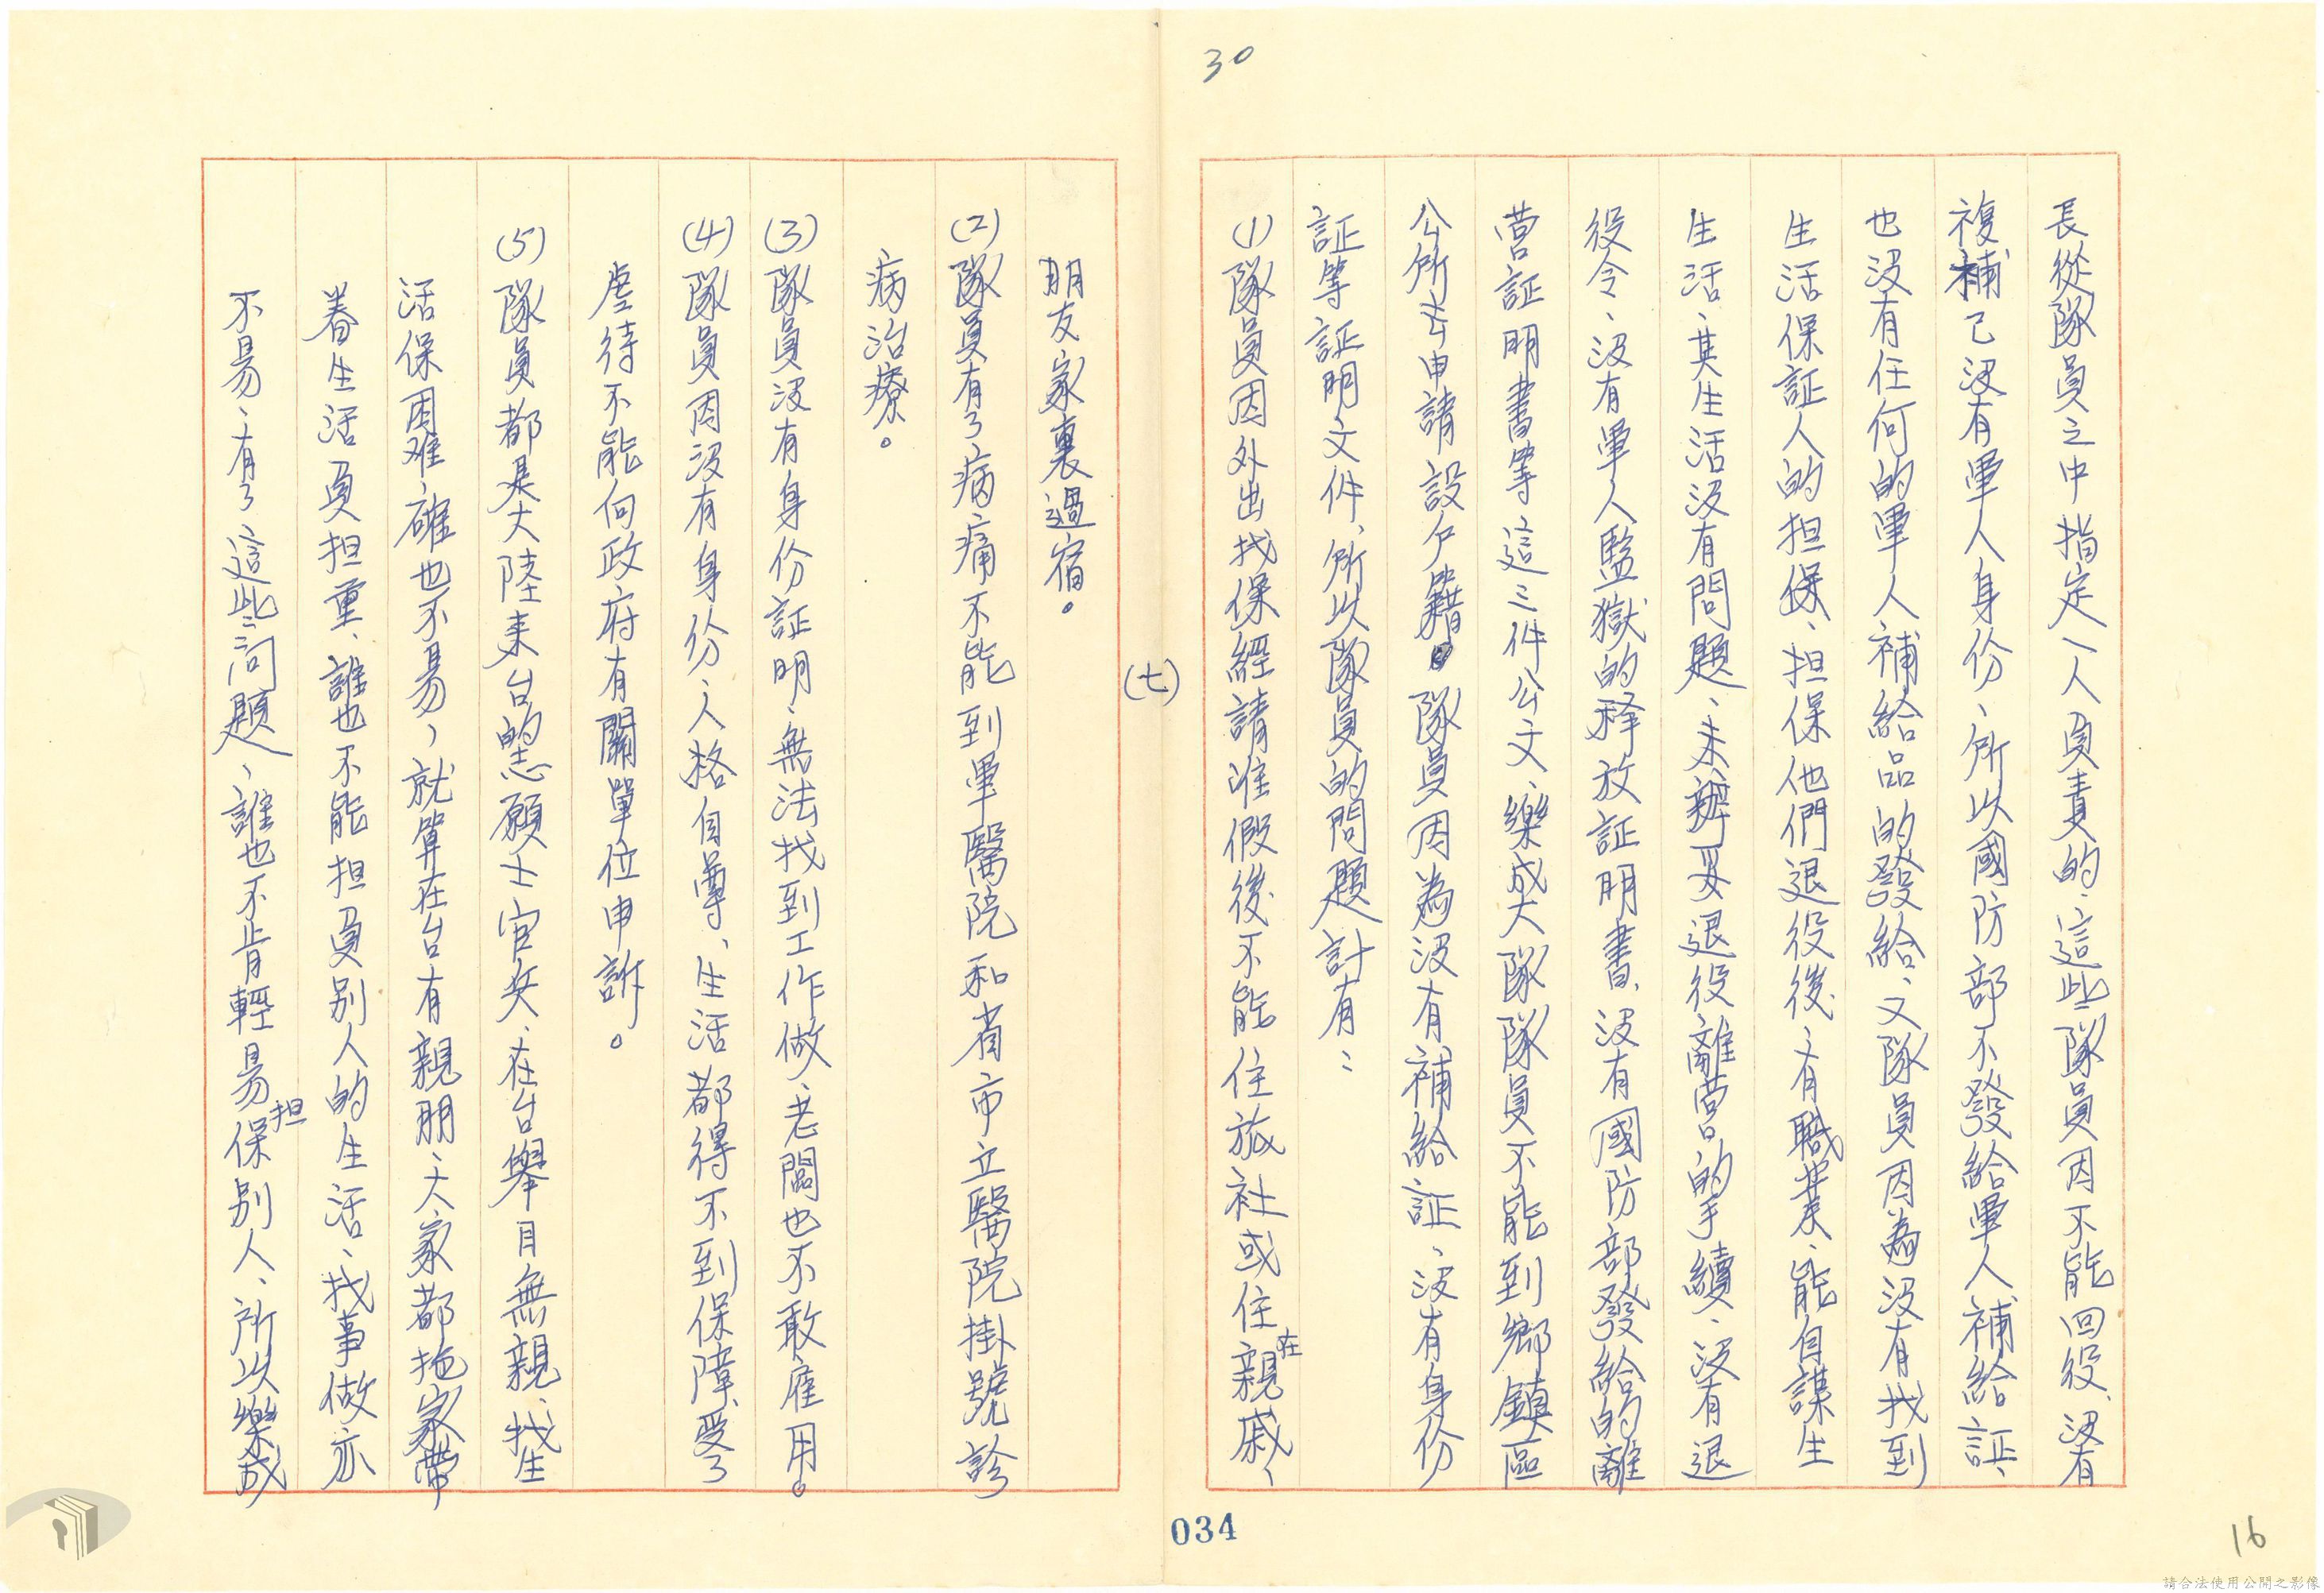 30
長從隊員之中指定一人負責的、這些隊員因不能回役、沒有
複補已沒有軍人身份、所以國防部不發給軍人補給証、
也沒有任何的軍人補給品的發給、又隊員因為沒有找到
生活保証人的担保、担保他們退役後、有職業、能自謀生
生活、其生活沒有問題、未辦妥退役離營的手續、沒有退
役令、沒有軍人監獄的释放証明書、沒有國防部發給的離
營証明書等、這三件公文、樂成大隊隊員不能到鄉鎮區
公所去申請設户籍。隊員因為沒有補給証、沒有身份
証等証明文件、所以隊員的問題計有：
(1)隊員因外出找保經請准假後不能住旅社或住在親戚、
(七)
朋友家裏過宿。
(2)隊員有了病痛不能到軍醫院和省市立醫院掛號診
病治療。
(3)隊員沒有身份証明、無法找到工作做、老闆也不敢雇用。
(4)隊員因沒有身份、人格自尊、生活都得不到保障、受了
虐待不能向政府有關單位申訴。
(5)隊員都是大陸來台的志願士官兵、在台舉目無親、找生
活保困难、確也不易、就算在台有親朋、大家都拖家帶
眷生活負担重、誰也不能担負别人的生活、找事做亦
不易、有了這些問題、誰也不肯輕易担保别人、所以樂成
034
16
請合法使用公開之影像